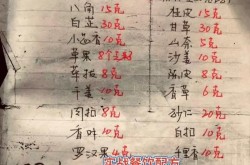 八角 15克 桂皮 15克
白芷 30克 甘草 30克
小茴香 10克 山奈 5克
草果 8个去籽 沙姜 10克
草拔 8克 陈皮 8克
干姜 10克 香 6克
肉扣 8克 砂仁 20克
香叶 10克 白扣 10克
罗汉果 4克 千里香 10克